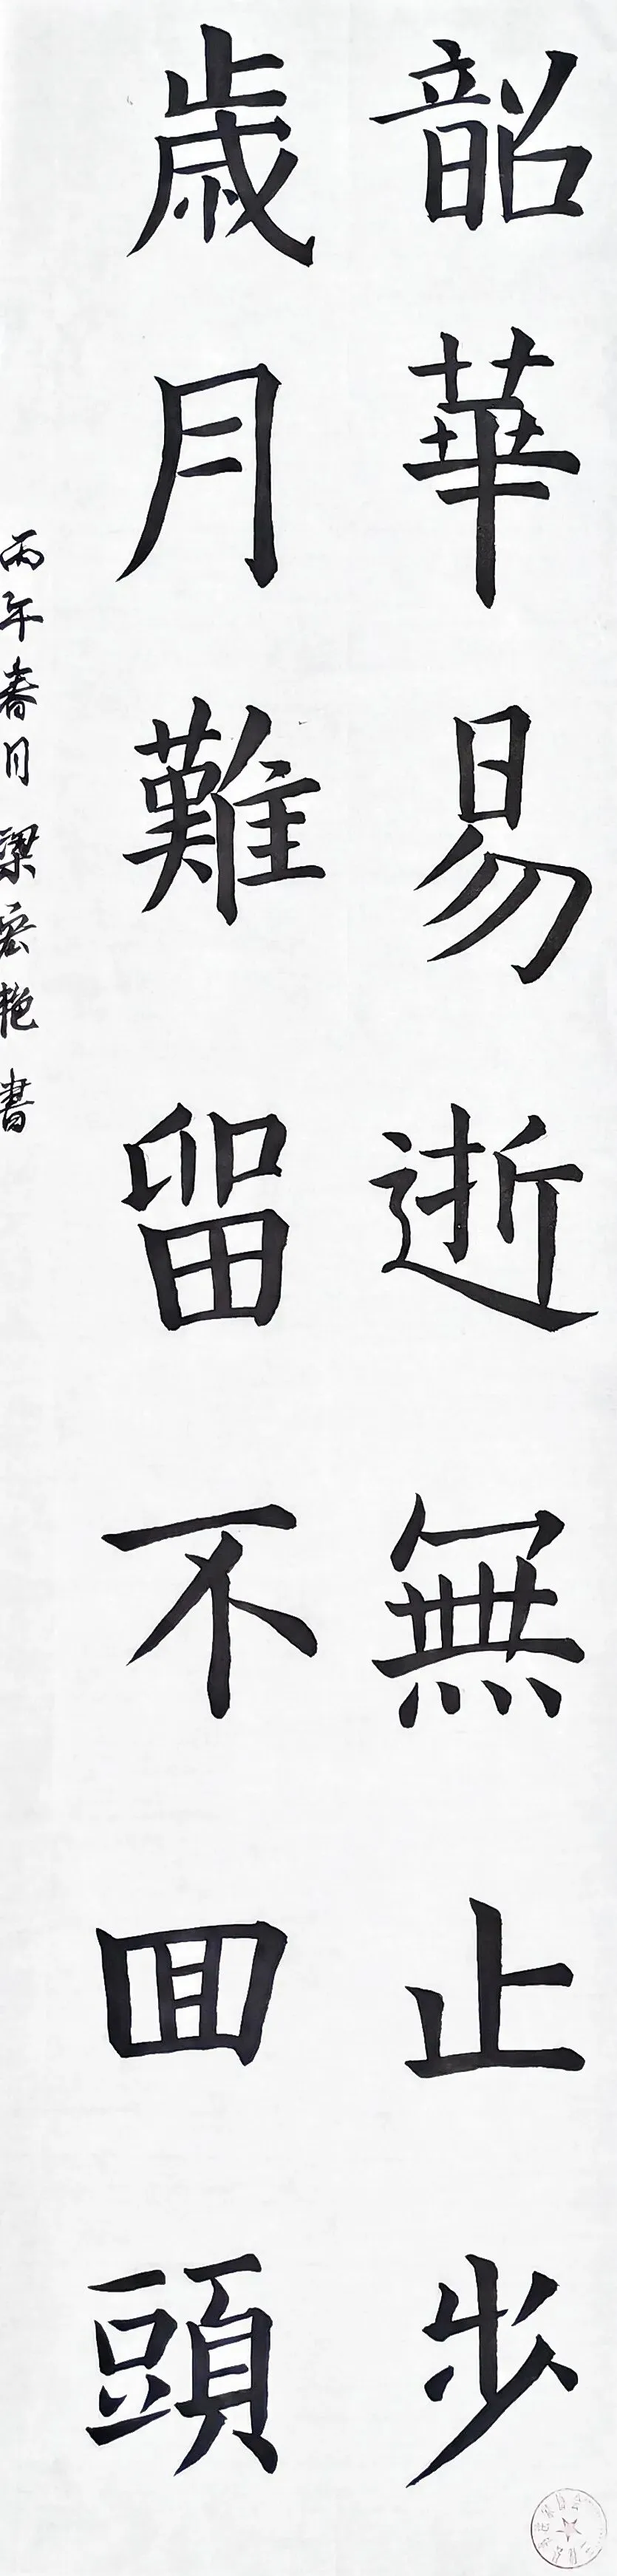 韶華易逝無止步
歳月難留不囬頭
丙午春月 梁宏艳書